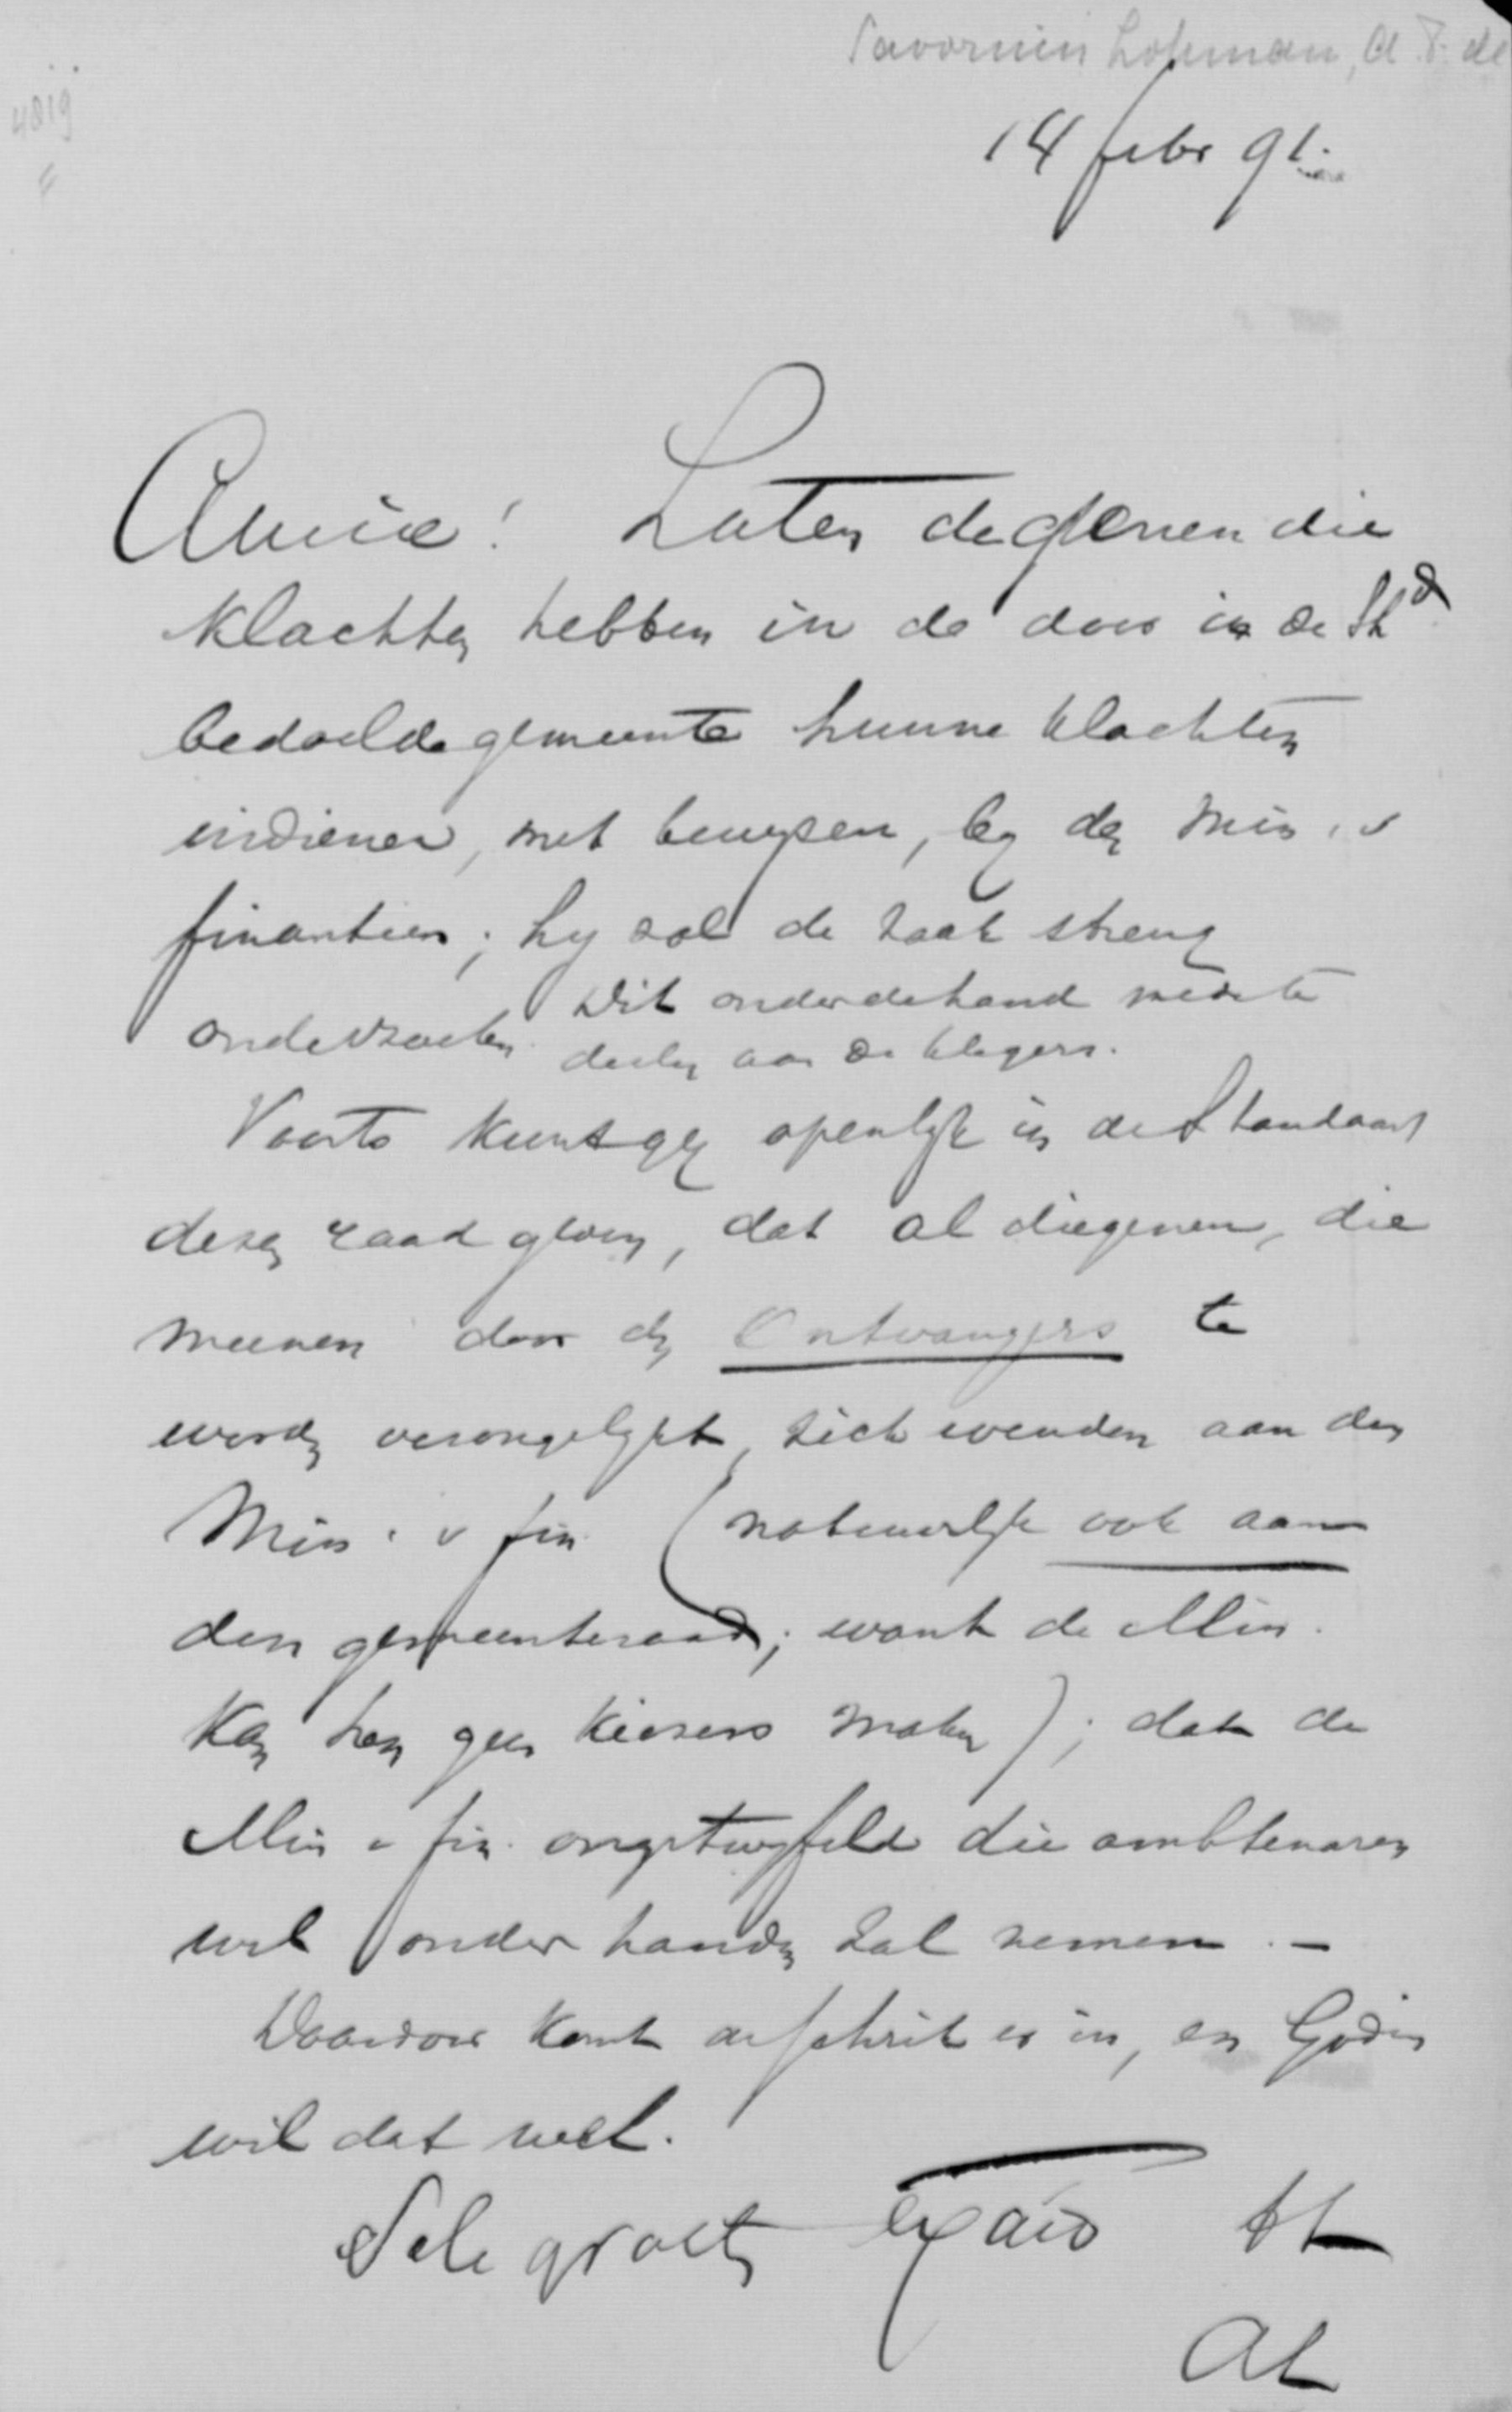 Savornin Lohman, A. F. de
4819
14 febr 91.
Amice! Laten degenen die
klachten hebben in de door in de Std
bedoelde gemeente hunne klachten
indienen, met bewijzen, by den Min. v
financien; hy zal de zaak streng
onderzoeken. Dit onderdehand mede te
deelen aan de klagers.
Voorts kunt gy openlyk in de Standaard
dezen raad geven, dat al diegenen, die
meenen door de Ontvangers te
worden verongelykt, zich wenden aan den
Min. v fin. (natuurlyk ook aan
den gemeenteraad; want de Min.
kan hen geen kiezers maken); dat de
Min v fin. ongetwyfeld die ambtenaren
wel onder handen zal nemen. -
Daardoor komt de schrik er in, en Godin
wil dat wel.
Vele groeten tt
AL